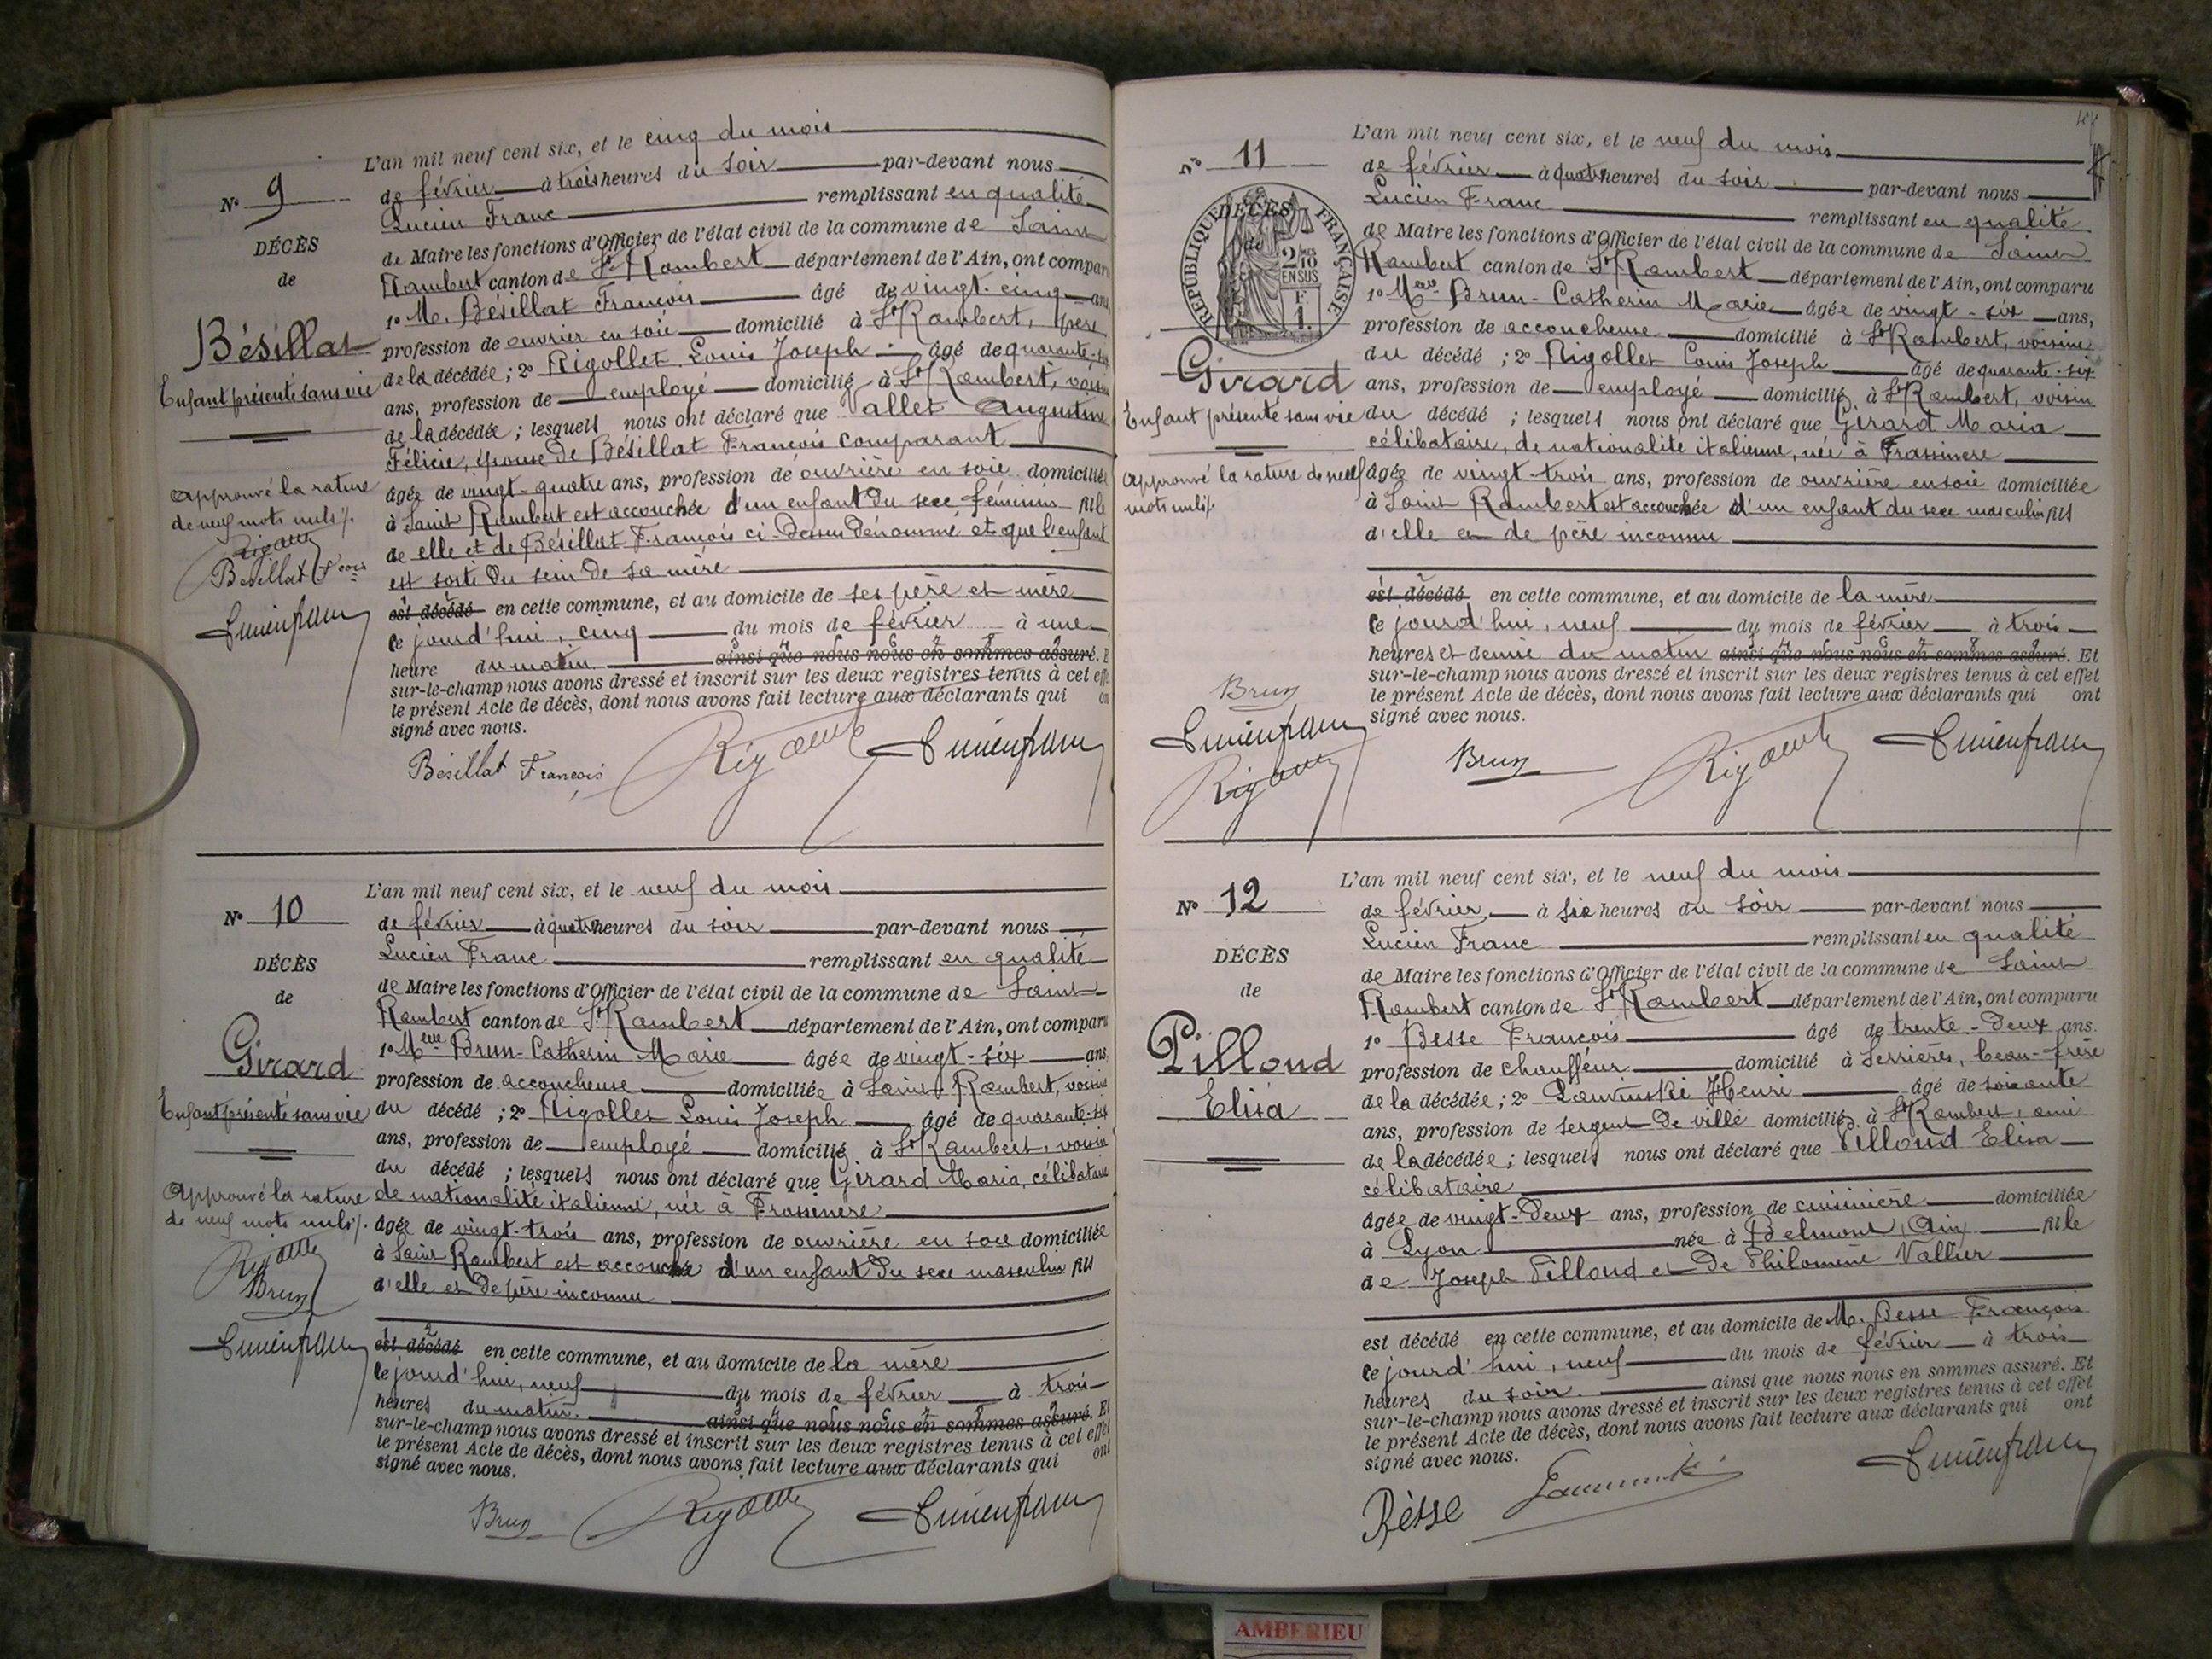 L'an mil neuf cent six, et le cinq du mois
N° 9
de février à trois heures du soir par-devant nous
Lucien Franc remplissant en qualité
DÉCÈS
de
de Maire les fonctions d'Officier de l'état civil de la commune de Saint
Rambert canton de St Rambert département de l'Ain, ont compar
1° M. Bésillat François âgé de vingt-cinq ans
Bésillat
profession de ouvrier en soie domicilié à St Rambert, père
Enfant présenté sans vie
de la décédée; 2° Rigollet Louis Joseph âgé de quarante-six
ans, profession de employé domicilié à St Rambert, voisin
de la décédée; lesquels nous ont déclaré que Vallet Augustine
Félicie, épouse de Bésillat François comparant
âgée de vingt-quatre ans, profession de ouvrière en soie domiciliée
à Saint Rambert est accouchée d'un enfant du sexe féminin fille
de elle et de Bésillat François ci-dessus dénommé et que l'enfant
est sorti du sein de sa mère
Approuvé la rature
de neuf mots nuls
Bésillat
est décédé en cette commune, et au domicile de ses père et mère
ce jourd'hui, cinq du mois de février à une
heure du matin ainsi que nous nous en sommes assuré. E
sur-le-champ nous avons dressé et inscrit sur les deux registres tenus à cet effe
le présent Acte de décès, dont nous avons fait lecture aux déclarants qui on
signé avec nous.
Bésillat François
L'an mil neuf cent six, et le neuf du mois
N° 10
de février à quatre heures du soir par-devant nous
Lucien Franc remplissant en qualité
DÉCÈS
de
de Maire les fonctions d'Officier de l'état civil de la commune de Saint
Rambert canton de St Rambert département de l'Ain, ont comparu
1° Mme Brun-Catherin Marie âgée de vingt-six ans
Girard
profession de accoucheuse domiciliée à Saint Rambert, voisine
Enfant présenté sans vie
du décédé; 2° Rigollet Louis Joseph âgé de quarante-six
ans, profession de employé domicilié à St Rambert, voisin
du décédé; lesquels nous ont déclaré que Girard Maria, célibataire
de nationalité italienne, née à Frassinere
Approuvé la rature
de neuf mots nuls
Brun
âgée de vingt-trois ans, profession de ouvrière en soie domiciliée
à Saint Rambert est accouchée d'un enfant du sexe masculin fils
d'elle et de père inconnu
est décédé en cette commune, et au domicile de la mère
ce jourd'hui, neuf du mois de février à trois
heures du matin. ainsi que nous nous en sommes assuré. Et
sur-le-champ nous avons dressé et inscrit sur les deux registres tenus à cet effet
le présent Acte de décès, dont nous avons fait lecture aux déclarants qui ont
signé avec nous.
Brun
L'an mil neuf cent six, et le neuf du mois
N° 11
de février à quatre heures du soir par-devant nous
Lucien Franc remplissant en qualité
DÉCÈS
de
RÉPUBLIQUE FRANÇAISE
2/10
EN SUS
F.
1.
de Maire les fonctions d'Officier de l'état civil de la commune de Saint
Rambert canton de St Rambert département de l'Ain, ont comparu
1° Mme Brun-Catherin Marie âgée de vingt-six ans,
profession de accoucheuse domicilié à St Rambert, voisine
Girard
du décédé; 2° Rigollet Louis Joseph âgé de quarante-six
ans, profession de employé domicilié à St Rambert, voisin
Enfant présenté sans vie
du décédé; lesquels nous ont déclaré que Girard Maria
célibataire, de nationalité italienne, née à Frassinere
Approuvé la rature de neuf
mots nuls
âgée de vingt-trois ans, profession de ouvrière en soie domiciliée
à Saint Rambert est accouchée d'un enfant du sexe masculin fils
d'elle et de père inconnu
est décédé en cette commune, et au domicile de la mère
ce jourd'hui, neuf du mois de février à trois
heures et demie du matin ainsi que nous nous en sommes assuré. Et
sur-le-champ nous avons dressé et inscrit sur les deux registres tenus à cet effet
le présent Acte de décès, dont nous avons fait lecture aux déclarants qui ont
signé avec nous.
Brun
Brun
L'an mil neuf cent six, et le neuf du mois
N° 12
de février à six heures du soir par-devant nous
Lucien Franc remplissant en qualité
DÉCÈS
de
de Maire les fonctions d'Officier de l'état civil de la commune de Saint
Rambert canton de St Rambert département de l'Ain, ont comparu
1° Besse François âgé de trente-deux ans.
Pilloud
Elisa
profession de chauffeur domicilié à Serrières, beau-frère
de la décédée; 2° Lawinski Henri âgé de soixante
ans, profession de sergent de ville domicilié à St Rambert, ami
de la décédée; lesquels nous ont déclaré que Pilloud Elisa
célibataire
âgée de vingt-deux ans, profession de cuisinière domiciliée
à Lyon née à Belmont (Ain) fille
de Joseph Pilloud et de Philomène Vallier
est décédé en cette commune, et au domicile de M. Besse François
ce jourd'hui, neuf du mois de février à trois
heures du soir. ainsi que nous nous en sommes assuré. Et
sur-le-champ nous avons dressé et inscrit sur les deux registres tenus à cet effet
le présent Acte de décès, dont nous avons fait lecture aux déclarants qui ont
signé avec nous.
Bèsse
AMBERIEU